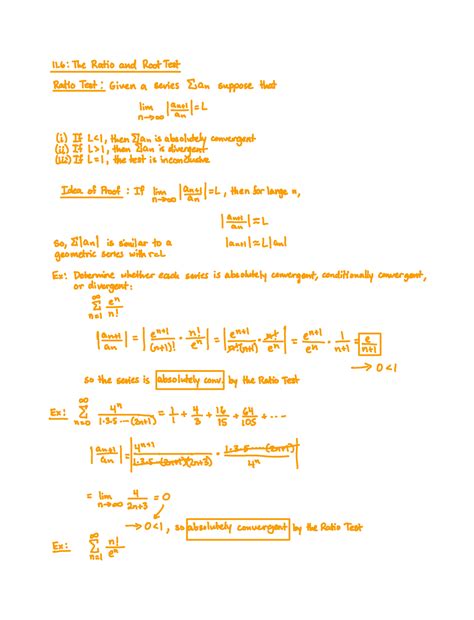 11.6: The Ratio and Root Test
Ratio Test: Given a series Σan suppose that
lim n→∞ |an+1/an| = L
(i) If L<1, then Σan is absolutely convergent
(ii) If L>1, then Σan is divergent
(iii) If L=1, the test is inconclusive
Idea of Proof: If lim n→∞ |an+1/an| = L, then for large n,
|an+1/an| ≈ L
So, Σ|an| is similar to a |an+1| ≈ L|an|
geometric series with r=L
Ex: Determine whether each series is absolutely convergent, conditionally convergent,
or divergent:
∞ Σ n=1 e^n/n!
|an+1/an| = |e^(n+1)/(n+1)! · n!/e^n| = |e^(n+1)/(n!(n+1)) · n!/e^n| = e^(n+1)/e^n · 1/(n+1) = e/(n+1)
→ 0<1
so the series is absolutely conv. by the Ratio Test
Ex: ∞ Σ n=0 4^n/(1·3·5···(2n+1)) = 1/1 + 4/3 + 16/15 + 64/105 + ···
|an+1/an| = |4^(n+1)/(1·3·5···(2n+1)(2n+3)) · 1·3·5···(2n+1)/4^n|
= lim n→∞ 4/(2n+3) = 0
→ 0<1, so absolutely convergent by the Ratio Test
Ex: ∞ Σ n=1 n!/e^n